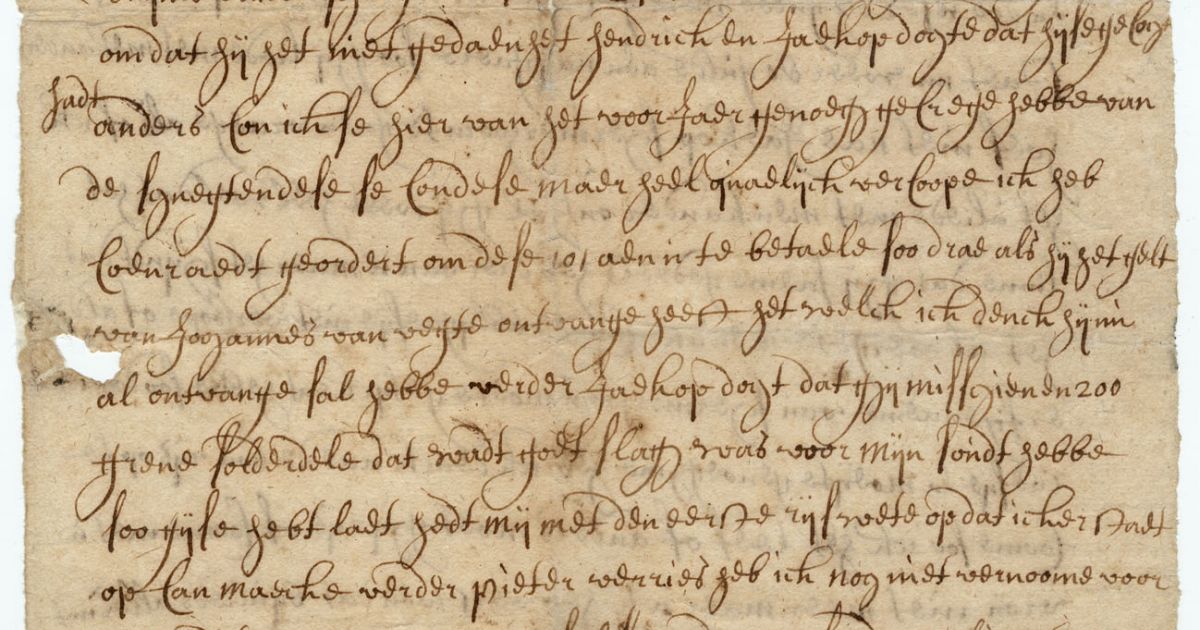 omdat hij het niet gedaen het hendrick en Jackop dogte dat hijse
hadt
anders Con ich se hier van het voor Jaer genoeg geCrege hebbe van
de se Condese maer heel qualijck vercoope ich heb
Coenraedt geordert om dese te betaele soo drae als hij het gelt
van Johannes van vegte ontvange heeft het welch ich denck hij nu
al ontvange sal hebbe verder Jackop dogt dat gij misschien en 200
grene solderdele dat wadt goet slagh was voor mijn sondt hebbe
soo gijse hebt laet hedt mij met den eerste rijs wete op dat ich er staet
op Can maecke verder Pieter verries heb ich nog niet vernoome voor